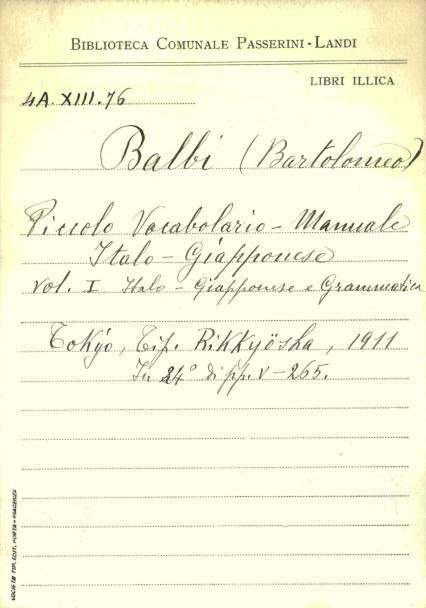 BIBLIOTECA COMUNALE PASSERINI-LANDI
LIBRI ILLICA
4A. XIII. 76
Balbi (Bartolomeo)
Piccolo Vocabolario - Manuale
Italo - Giapponese
Vol. I Italo - Giapponese e Grammatica
Tokyo, Tip. Rikkyösha, 1911
In 24° di pp. V - 265.
SOCIETÀ TIP. EDIT. PORTA - PIACENZA